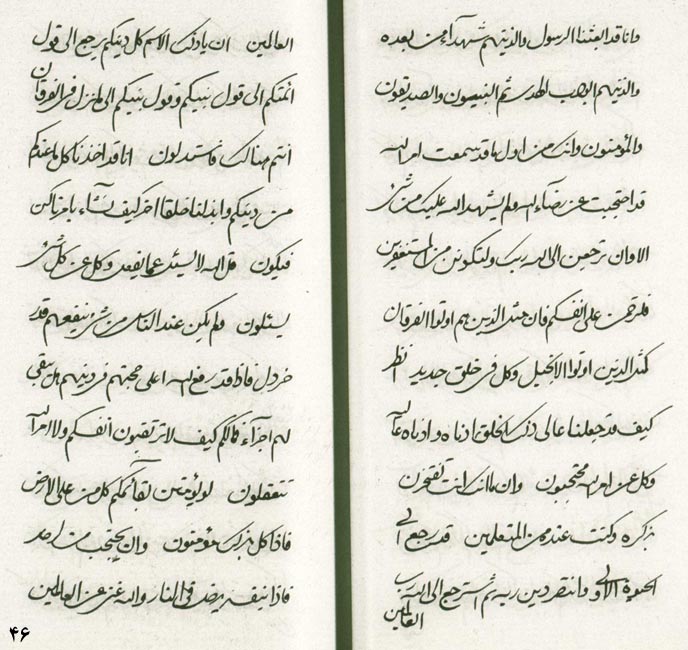 وانا قد ابعثنا الرسول والذينهم شهدآء من بعده
والذينهم ابواب الهدى ثم النبيون والصديقون
والمؤمنون وانك من اول ما قد سمعت امر الله
قد احتجبت عن رضآء الله ولم يشهد الله عليك من شئ
الا وان ترجعن الى الله ربك ولتكونن من المستغفرين
فلترحمن على انفسكم فان مثل الذين هم اوتوا الفرقان
كمثل الذين اوتوا الانجيل وكل فى خلق جديد انظر
كيف قد جعلنا عالى ذلك الخلق ادناه وادناه عاليه
وكل عن امر الله محتجبون وان ما انك انت تفتخرن
بذكره وكنت عنده من المتعلمين قد رجع الى
الحيوة الاولى وانتصر دين ربه ثم استرجع الى الله رب
العالمين
العالمين ان يا ذلك الاسم كل دينكم يرجع الى قول
ائمتكم الى قول نبيكم وقول نبيكم الى ما نزل فى الفرقان
انتم هنالك فاستدلون انا قد اخذنا كل ما عندكم
من دينكم وابدلنا خلقا اخر كيف نشآء بامرنا كن
فيكون قل الله لا يسئل عما يفعل وكل عن كل شئ
يسئلون ولم يكن عند الناس من شئ ينفعهم قدر
خردل فاذا قد رفع الله اعلى حجتهم فى دينهم هل بقى
لهم اجزآء فما لكم كيف لا ترتقبون انفسكم ولا امر الله
تتعقلون لو يؤمنن بقائمكم كل من على الارض
فاذا كل بذلك مؤمنون وان يحتجب من احد
فاذا بنفسه يدخل فى النار والله غنى عن العالمين
۴۶